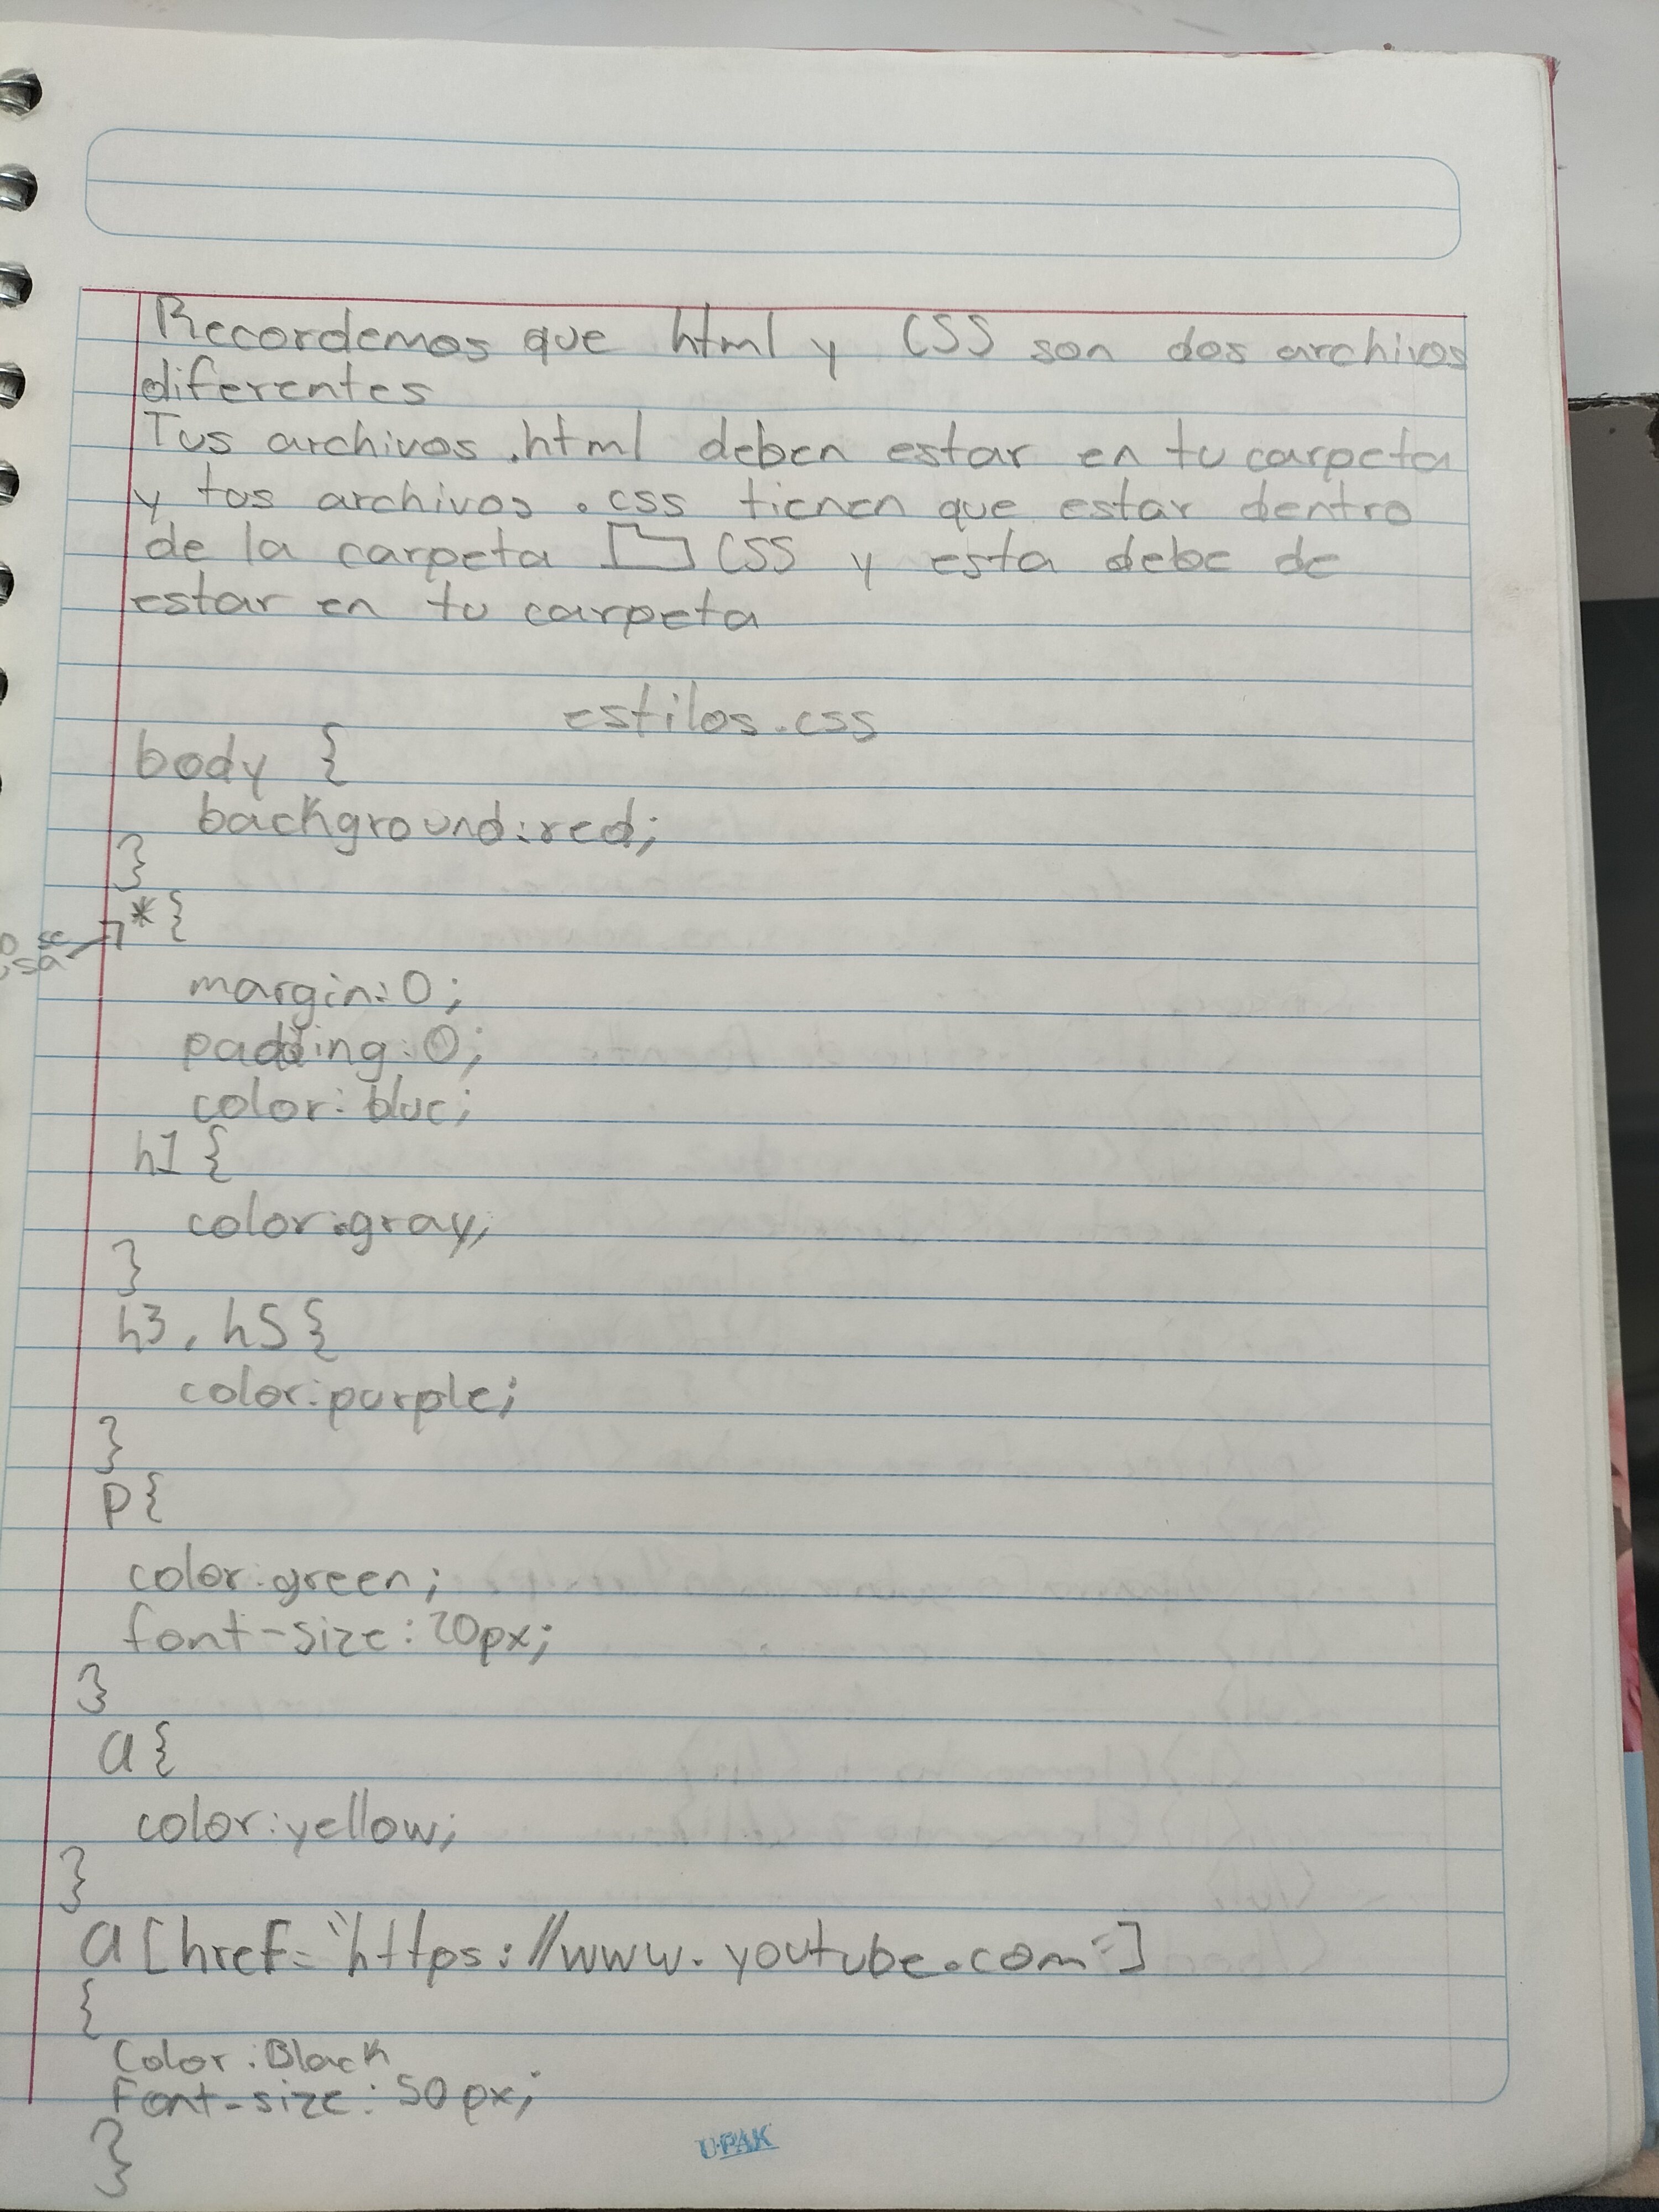 Recordemos que html y CSS son dos archivos
diferentes
Tus archivos .html deben estar en tu carpeta
y tus archivos .css tienen que estar dentro
de la carpeta CSS y esta debe de
estar en tu carpeta
estilos.css
body {
background:red;
}
*{
se
margin:0;
padding:0;
color:blue;
h1{
color:gray;
}
h3, h5{
color:purple;
}
p{
color:green;
font-size:20px;
}
a{
color:yellow;
}
a[href="https://www.youtube.com"]
{
Color:Black
Font-size:50px;
}
U·PAK